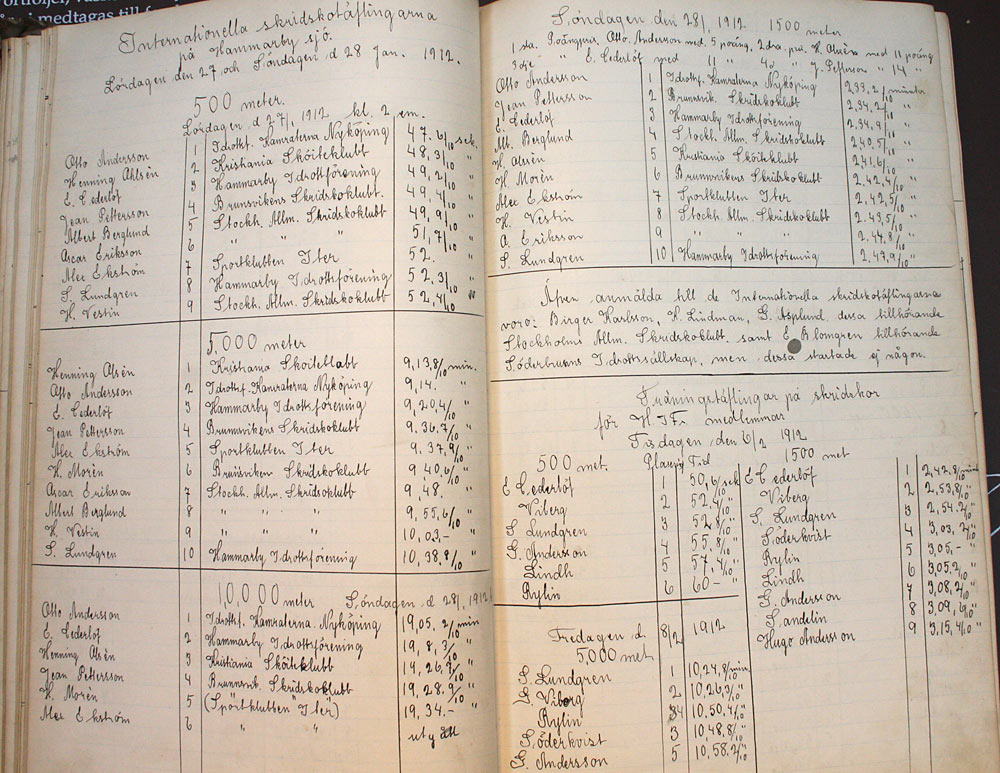 i medtagas till
Internationella skridskotäflingarna
på Hammarby sjö.
Lördagen den 27 och Söndagen d 28 Jan. 1912.
500 meter.
Lördagen d 27/1 1912 kl. 2 em.
Otto Andersson 1 Idrottsf. Kamraterna Nyköping 47.6/10 sek.
Henning Ahlsén 2 Kristiania Sköiteklubt 48,3/10 "
E. Cederlöf 3 Hammarby Idrottförening 49,2/10 "
Jean Pettersson 4 Brunsvikens Skridskoklubt. 49,4/10 "
Albert Berglund 5 Stockh. Allm. Skridskoklubt 49,9/10 "
Oscar Eriksson 6 " " " 51,7/10 "
Alec Ekström 7 Sportklubben Iter 52. "
S. Lundgren 8 Hammarby Idrottförening 52,3/10 "
H. Vestin 9 Stockh. Allm. Skridskoklubt 52,4/10 "
5000 meter
Henning Alsén 1 Kristiania Skoiteklubt 9,13,8/10 min.
Otto Andersson 2 Idrottsf. Kamraterna Nyköping 9,14. "
E. Cederlöf 3 Hammarby Idrottsförening 9,20,4/10 "
Jean Pettersson 4 Brunnsvikens Skridskoklubt 9,36,7/10 "
Alec Ekström 5 Sportklubben Iter 9,37,9/10 "
H. Morén 6 Brunsviken Skridskoklubb 9,40,6/10 "
Oscar Eriksson 7 Stockh. Allm. Skridskoklubt 9,48. "
Albert Berglund 8 " " " 9,55,6/10 "
H. Vestin 9 " " " 10,03,- "
S. Lundgren 10 Hammarby Idrottförening 10,38,8/10 "
10,000 meter Söndagen. d 28/1 1912
Otto Andersson 1 Idrottsf. Kamraterna. Nyköping 19,05 2/10 min
E. Cederlöf 2 Hammarby Idrottförening 19,8,3/10 "
Henning Alsén 3 Kristiania Sköiteklubb "
Jean Pettersson 4 Brunnsvik. Skridskoklubb 19,28,9/10 "
H. Morén 5 (Sportklubben Iter) 19,34.- "
Alec Ekström 6 " " utgått
Söndagen den 28/1 1912 1500 meter
1 sta. Poängpris, Otto Andersson med. 5 poäng, 2dra. pris. H. Alsén med 11 poäng
3dje " E. Cederlöf med 11 " 4de " J. Petterson " 14 "
Otto Andersson 1 Idrottsf. Kamraterna Nyköping 2,33,2/10 minuter
Jean Pettersson 2 Brunnsvik. Skridskoklubt 2,34,2/10 "
E. Cederlöf 3 Hammarby Idrottförening 2,34,8/10 "
Alb. Berglund 4 Stockh. Allm. Skridskoklubb 2,40,5/10 "
H. Alsén 5 Kristiania Sköiteklubb 2,41,6/10 "
H. Morén 6 Brunnsvikens Skridskoklubb 2,42,4/10 "
Alec Ekström 7 Sportklubben Iter 2,42,5/10 "
H. Vestin 8 Stockh. Allm. Skridskoklubb 2,43,5/10 "
O. Eriksson 9 " " " 2,44,8/10 "
S. Lundgren 10 Hammarby Idrottförening 2,47,9/10 "
Äfven anmälda till de Internationella skridskotäflingarna
voro: Birger Karlsson, K. Lindman, G. Asplund, dessa tillhörande
Stockholms Allm. Skridskoklubt. samt E Blomgren tillhörande
Söderbrunns Idrottssällskap, men dessa startade ej någon.
Träningstäflingar på skridskor
för H.I.Fs medlemmar
Tisdagen den 6/2 1912
500 met. Placering Tid 1500 met
E Cederlöf 1 50,6/10 sek E Cederlöf 1 2,42,8/10 minut
Viberg 2 52,4/10 " Viberg 2 2,53,8/10 "
S. Lundgren 3 52,8/10 " S. Lundgren 3 2,54,2/10 "
G. Andersson 4 55,8/10 " Söderkvist 4 3,03,2/10 "
Lindh 5 57,4/10 " Rylin 5 3,05,- "
Rylin 6 60- " Lindh 6 3,05,2/10 "
G. Andersson 7 3,08,2/10 "
Sandelin 8 3,09,6/10 "
Hugo Andersson 9 3,15,4/10 "
Fredagen d. 8/2 1912
5,000 met
S. Lundgren 1 10,24,8/10 min
G Viberg 2 10,26,3/10 "
Rylin 34 10,50,4/10 "
Söderkvist 3 10,48,8/10 "
G. Andersson 5 10,58,2/10 "